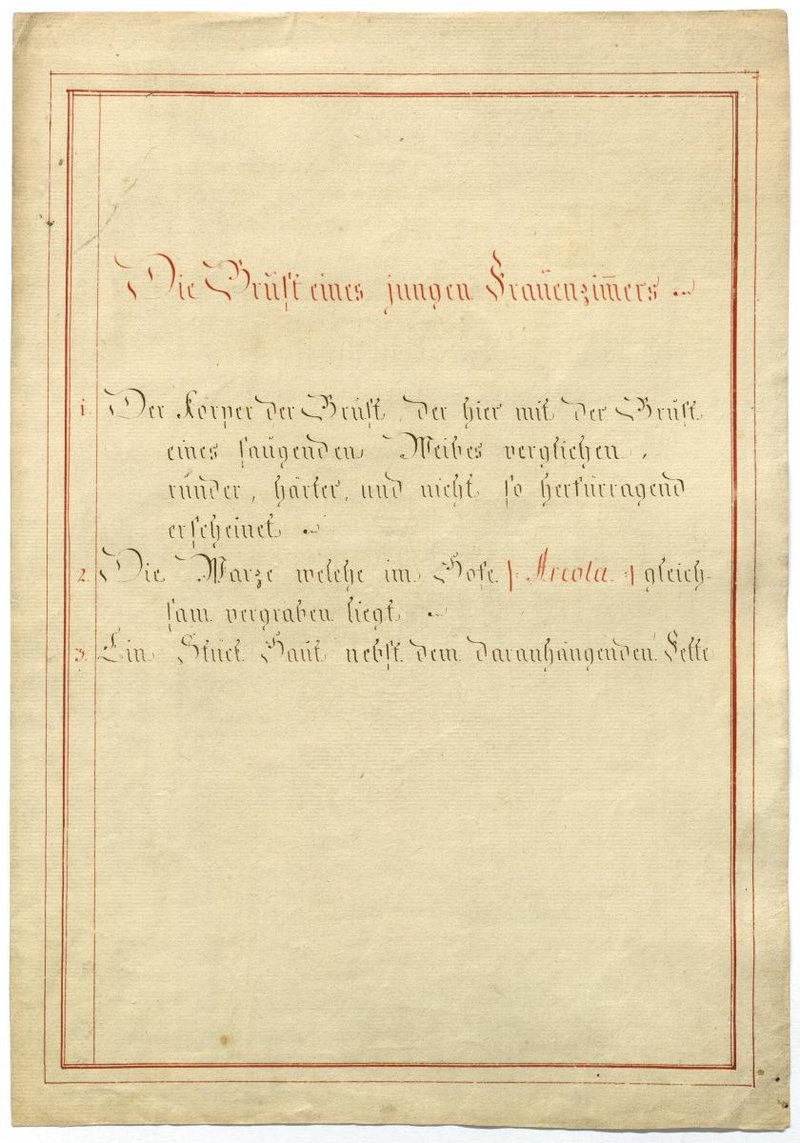 Die Brust eines jungen Frauenzim̅ers
1. Der Körper der Brust, der hier mit der Brust
eines saugenden Weibes verglichen,
runder, härter, und nicht so herfürragend
erscheinet
2. Die Warze welche im Hofe |: Areola :| gleich-
sam vergraben liegt
3. Ein Stück Haut nebst dem daranhängenden Fette